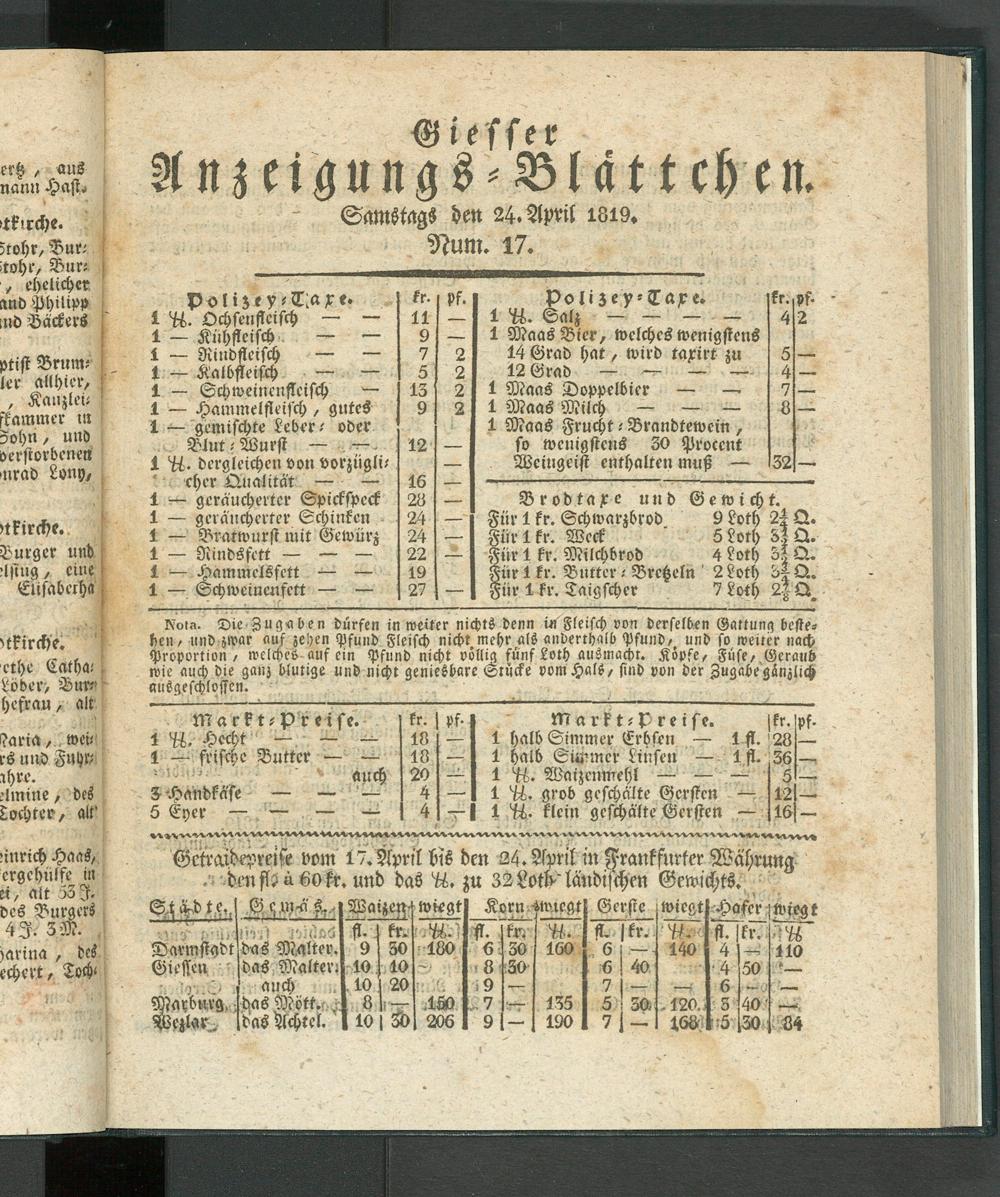 ertz, aus
mann Hast.
otkirche.
Stohr, Bur-
Stohr, Bur-
, ehelicher
and Philipp
und Bäckers
ptist Brum-
ler allhier,
, Kanzlei-
fkammer in
Sohn, und
verstorbenen
onrad Lony,
otkirche.
Burger und
elstug, eine
Elisabetha
otkirche.
rethe Catha-
Löber, Bur-
hefrau, alt
Maria, wei-
rs und Fuhr-
ahre.
elmine, des
Tochter, alt
einrich Haas,
ergehülfe in
ei, alt 53 J.
des Burgers
4 J. 3 M.
harina, des
echert, Toch-
Giesser
Anzeigungs-Blättchen.
Samstags den 24. April 1819.
Num. 17.
Polizey-Taxe. kr. pf.
1 ℔. Ochsenfleisch — — 11 —
1 — Kühfleisch — — 9 —
1 — Rindfleisch — — 7 2
1 — Kalbfleisch — — 5 2
1 — Schweinenfleisch — 13 2
1 — Hammelfleisch, gutes 9 2
1 — gemischte Leber- oder
Blut-Wurst — — 12 —
1 ℔. dergleichen von vorzügli- —
cher Qualität — — 16 —
1 — geräucherter Spickspeck 28 —
1 — geräucherter Schinken 24 —
1 — Bratwurst mit Gewürz 24 —
1 — Rindsfett — — 22 —
1 — Hammelsfett — — 19 —
1 — Schweinenfett — — 27 —
Polizey-Taxe. kr. pf.
1 ℔. Salz — — — — 4 2
1 Maas Bier, welches wenigstens
14 Grad hat, wird taxirt zu 5 —
12 Grad — — — — 4 —
1 Maas Doppelbier — — 7 —
1 Maas Milch — — — 8 —
1 Maas Frucht-Brandtewein,
so wenigstens 30 Procent
Weingeist enthalten muß — 32 —
Brodtaxe und Gewicht.
Für 1 kr. Schwarzbrod 9 Loth 2 Q.
Für 1 kr. Weck 5 Loth 3 Q.
Für 1 kr. Milchbrod 4 Loth 3 Q.
Für 1 kr. Butter-Bretzeln 2 Loth 3 Q.
Für 1 kr. Taigscher 7 Loth 2 Q.
Nota. Die Zugaben dürfen in weiter nichts denn in Fleisch von derselben Gattung beste-
hen, und zwar auf zehen Pfund Fleisch nicht mehr als anderthalb Pfund, und so weiter nach
Proportion, welches auf ein Pfund nicht völlig fünf Loth ausmacht. Köpfe, Füse, Geraub
wie auch die ganz blutige und nicht geniesbare Stücke vom Hals, sind von der Zugabe gänzlich
ausgeschlossen.
Markt-Preise. kr. pf.
1 ℔. Hecht — — — 18 —
1 — frische Butter — — 18 —
auch 20 —
3 Handkäse — — — 4 —
5 Eyer — — — — 4 —
Markt-Preise. kr. pf.
1 halb Simmer Erbsen — 1 fl. 28 —
1 halb Simmer Linsen — 1 fl. 36 —
1 ℔. Waizenmehl — — — 5 —
1 ℔. grob geschälte Gersten — 12 —
1 ℔. klein geschälte Gersten — 16 —
Getraidepreise vom 17. April bis den 24. April in Frankfurter Währung
den fl. à 60 kr. und das ℔. zu 32 Loth ländischen Gewichts.
Städte. Gemäs. Waizen wiegt Korn wiegt Gerste wiegt Hafer wiegt
fl. kr. ℔. fl. kr. ℔. fl. kr. ℔. fl. kr. ℔
Darmstadt das Malter. 9 30 180 6 30 160 6 — 140 4 — 110
Giessen das Malter. 10 10 8 30 6 40 4 50 —
auch 10 20 9 — 7 — — 6 —
Marburg das Mött. 8 — 150 7 — 135 5 30 120 3 40 —
Wezlar das Achtel. 10 30 206 9 — 190 7 — 168 5 30 84